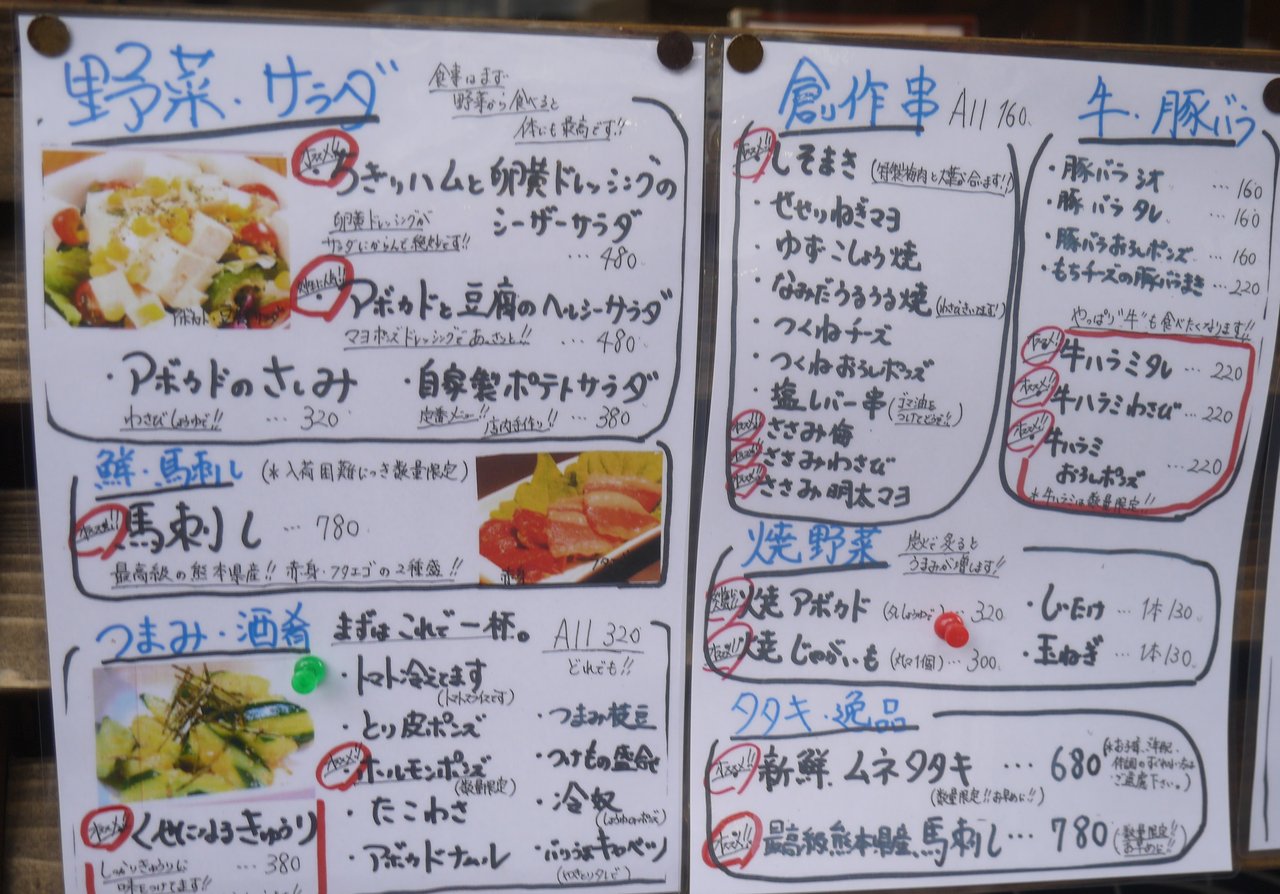 野菜・サラダ
食事はまず
野菜から食べると
体にも最高です!!
オススメ!!
ちぎりハムと卵黄ドレッシングの
シーザーサラダ
卵黄ドレッシングが
サラダにからんで絶妙です!!
…480
・アボカドと豆腐のヘルシーサラダ
マヨポンズドレッシングであっさりと!!
…480
・アボカドのさしみ
わさびしょうゆで!!
…320
・自家製ポテトサラダ
定番メニュー!!
店内手作り!!
…380
鮮・馬刺し
(※入荷困難につき数量限定)
オススメ!!
馬刺し …780
最高級の熊本県産!! 赤身・フタエゴの2種盛!!
赤身
つまみ・酒肴
まずはこれで一杯。
All 320
どれでも!!
・トマト冷えてます
(トマトスライスです)
・とり皮ポンズ
オススメ!!
・ホルモンポンズ
(数量限定)
・たこわさ
・アボカドナムル
・つまみ枝豆
・つけもの盛合せ
・冷奴
(しょうゆorポンズ)
・バリうまキャベツ
(やきとりダレで)
オススメ!!
くせになるきゅうり
…380
創作串 All 160
オススメ!!
しそまき (特製梅肉と大葉が合います!!)
・せせりねぎマヨ
・ゆずこしょう焼
・なみだうるうる焼
・つくねチーズ
・つくねおろしポンズ
・塩レバー串 (ゴマ油を
つけてどうぞ!!)
オススメ!!
ささみ梅
オススメ!!
ささみわさび
オススメ!!
ささみ明太マヨ
牛・豚バラ
・豚バラシオ …160
・豚バラタレ …160
・豚バラおろしポンズ …160
・もちチーズの豚バラまき …220
やっぱり"牛"も食べたくなります!!
オススメ!!
牛ハラミタレ …220
オススメ!!
牛ハラミわさび …220
オススメ!!
牛ハラミ
おろしポンズ …220
※牛ハラミは数量限定!!
焼野菜
炭で炙ると
うまみが増します!!
焼アボカド …320
オススメ!!
焼じゃがいも (丸々1個) …300
・しいたけ …1本130
・玉ねぎ …1本130
タタキ・逸品
オススメ!!
新鮮ムネタタキ …680
(数量限定!!お早めに!!)
ご遠慮下さい。)
オススメ!!
最高級熊本県産馬刺し…780
(数量限定!!
お早めに!!)